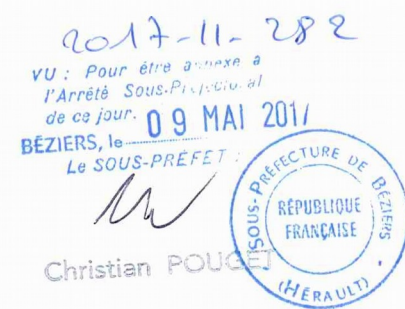 2017-11-282
VU : Pour être annexé à
l'Arrêté Sous-Préfectoral
de ce jour.
BÉZIERS, le 09 MAI 2017
Le SOUS-PRÉFET :
Christian POUGET
SOUS-PRÉFECTURE DE BÉZIERS
RÉPUBLIQUE
FRANÇAISE
(HÉRAULT)